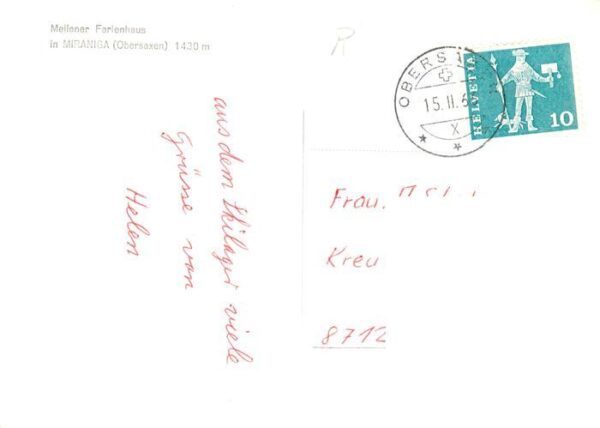 Meilener Ferienhaus
in MIRANIGA (Obersaxen) 1430 m
R
OBERS
15.II.6
X
HELVETIA
10
aus dem Skilager viele
Grüsse von
Helen
Frau.
Kreu
8712